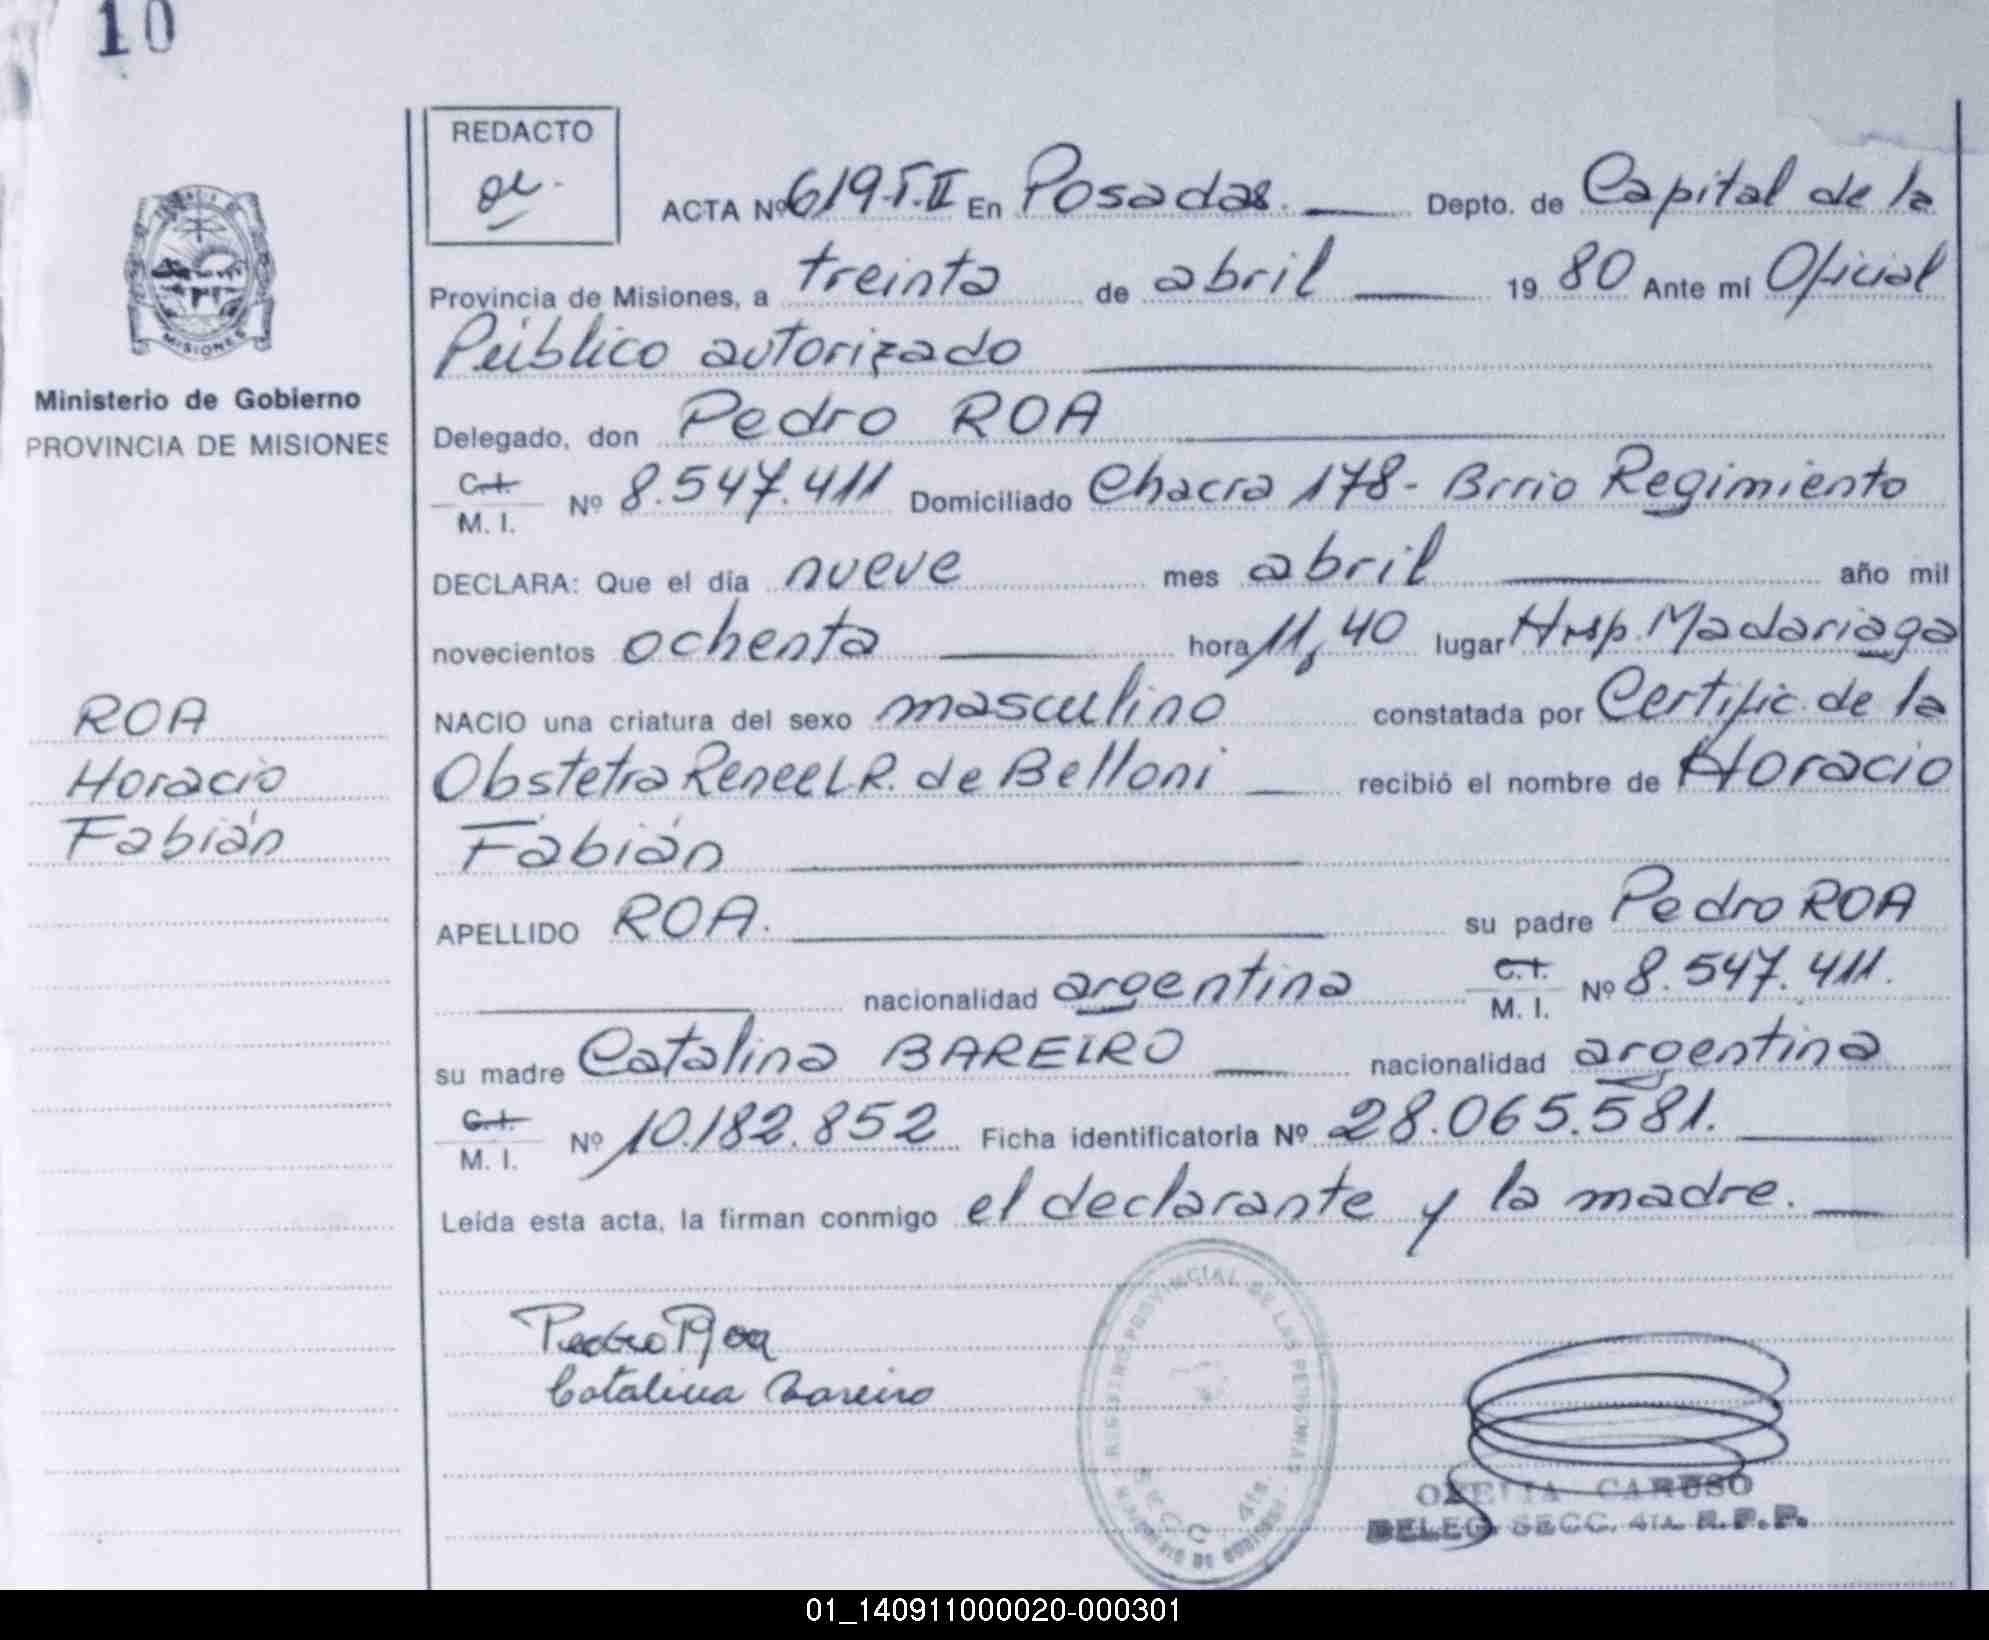 10
REDACTO
ACTA Nº 619-T.II En Posadas. Depto. de Capital de la
Provincia de Misiones, a treinta de abril 19 80 Ante mi Oficial
Público autorizado
MISIONES
Ministerio de Gobierno
PROVINCIA DE MISIONES
Delegado, don Pedro ROA
C.I.
M. I. Nº 8.547.411 Domiciliado Chacra 178- Brrio Regimiento
DECLARA: Que el día nueve mes abril año mil
novecientos ochenta hora 11,40 lugar Hosp. Madariaga
ROA
Horacio
Fabián
NACIO una criatura del sexo masculino constatada por Certific. de la
Obstetra Renee L.R. de Belloni recibió el nombre de Horacio
Fabián
APELLIDO ROA. su padre Pedro ROA
nacionalidad argentina C.I. M. I. Nº 8.547.411.
su madre Catalina BAREIRO nacionalidad argentina
C.I.
M. I. Nº 10.182.852 Ficha identificatoria Nº 28.065.581.
Leída esta acta, la firman conmigo el declarante y la madre.
Pedro Roa
Catalina Bareiro
REGISTRO PROVINCIAL DE LAS PERSONAS
SECC. 4ta.
MINISTERIO DE GOBIERNO
CARUSO
DELEG. SECC. 4TA. R.P.P.
01_140911000020-000301